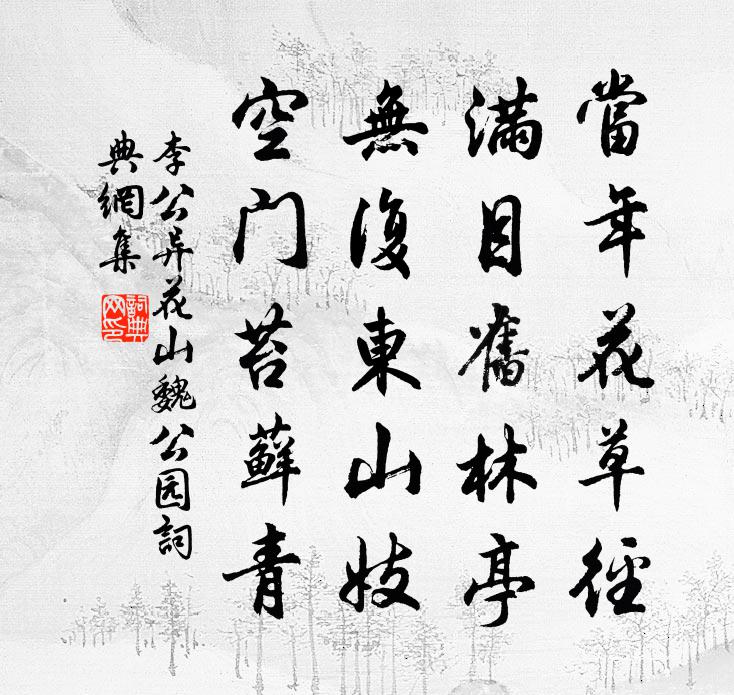 當年花草徑
滿目舊林亭
無復東山妓
空门苔蘚青
李公异花山魏公园詞
典網集
詞典
网印